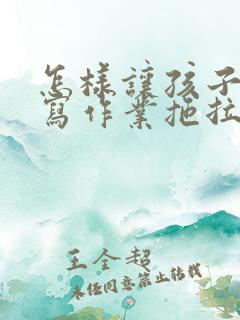 怎樣讓孩子
寫作業拖拉
王全超
未經同意禁止轉載